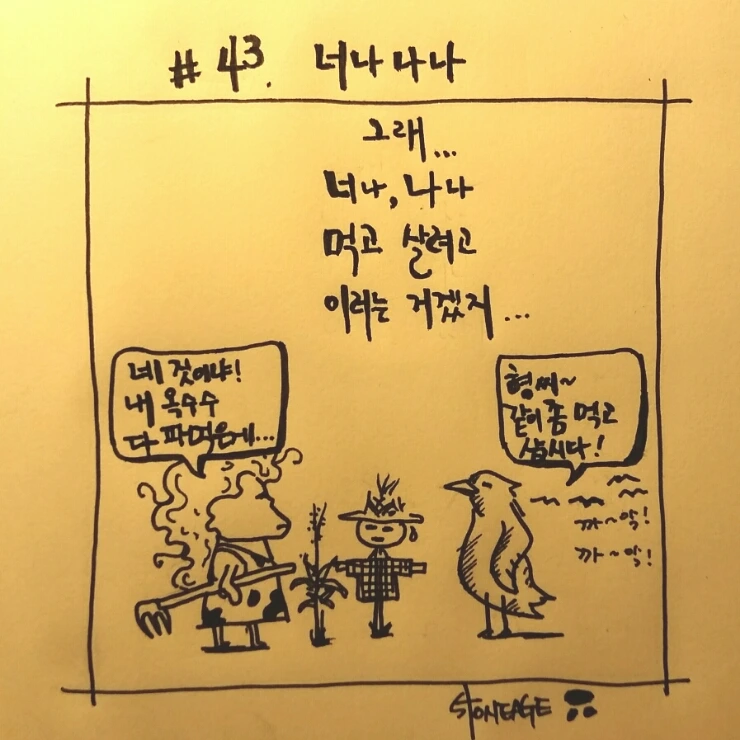 #43. 너나 나나
그래...
너나, 나나
먹고 살려고
이러는 거겠지...
네 것이냐!
내 옥수수
다 파먹은게...
형씨~
같이 좀 먹고
삽시다!
까~악!
까~악!
STONEAGE